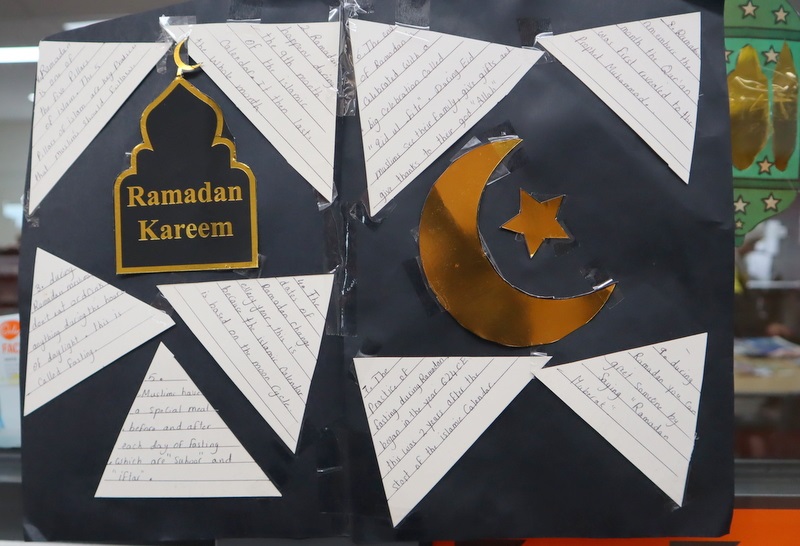 Ramadan
is one of
the five Pillars
of islam. The
Pillars of islam are key Practices
that muslims should follow.
Ramadan
happens during
the 9th month
of the islamic
Calendar. It then last
the whole month
6. The end
of Ramadan is
Celebrated with a
big Celebration called
"Eid ul fitr". During Eid
muslims see their family, give gifts and
give thanks to their god "Allah"
8. Ramadan
remembers the
month the Qur'an
was first revealed to the
Prophet Muhammad.
Ramadan
Kareem
3. during
Ramadan muslims
don't eat or drink
anything during the hours
of daylight. This is
Called fasting.
4. The
dates of
Ramadan change
every year. This is
because the islamic Calender
is based on the moon Cycle
5.
Muslims have
a special meal
before and after
each day of fasting
which are "Suhoor" and
"iftar".
7. The
Practice of
fasting during Ramadan
began in the year 624 CE
this was 2 years after the
start of the islamic Calendar
9. during
Ramadan you can
greet someone by
Saying "Ramadan
Mubarak"